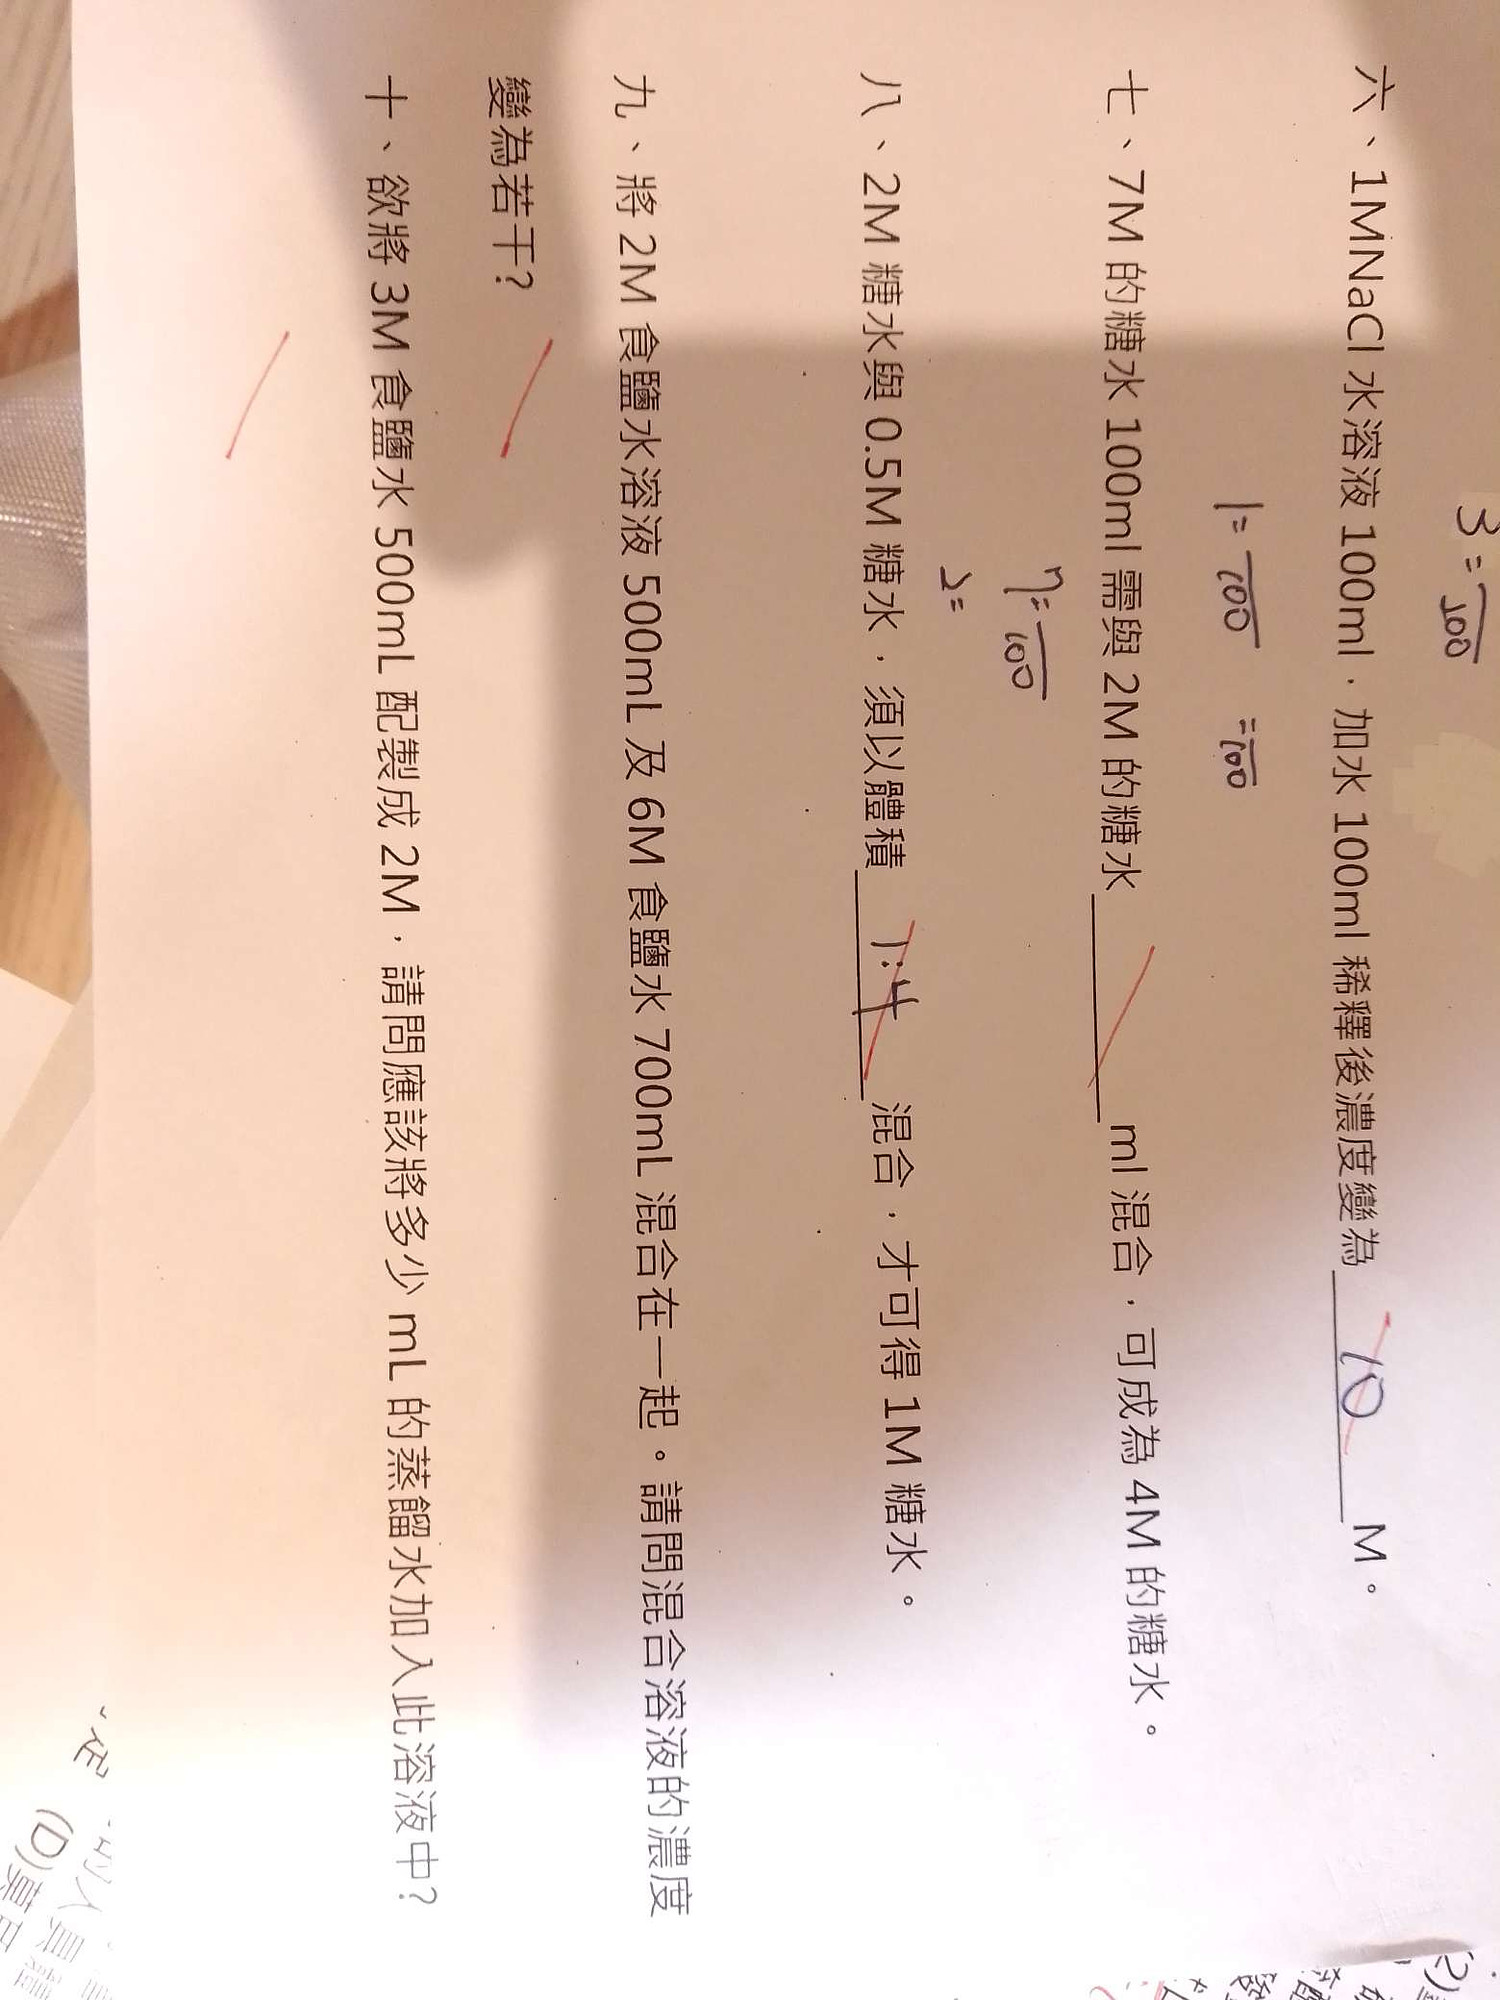 3 = /100
六、1MNaCl 水溶液 100ml，加水 100ml 稀釋後濃度變為 10 M。
1 = /100 = /100
七、7M 的糖水 100ml 需與 2M 的糖水 ml 混合，可成為 4M 的糖水。
7 = /100
2 =
八、2M 糖水與 0.5M 糖水，須以體積 1:4 混合，才可得 1M 糖水。
九、將 2M 食鹽水溶液 500mL 及 6M 食鹽水 700mL 混合在一起。請問混合溶液的濃度
變為若干?
十、欲將 3M 食鹽水 500mL 配製成 2M，請問應該將多少 mL 的蒸餾水加入此溶液中?
(D)